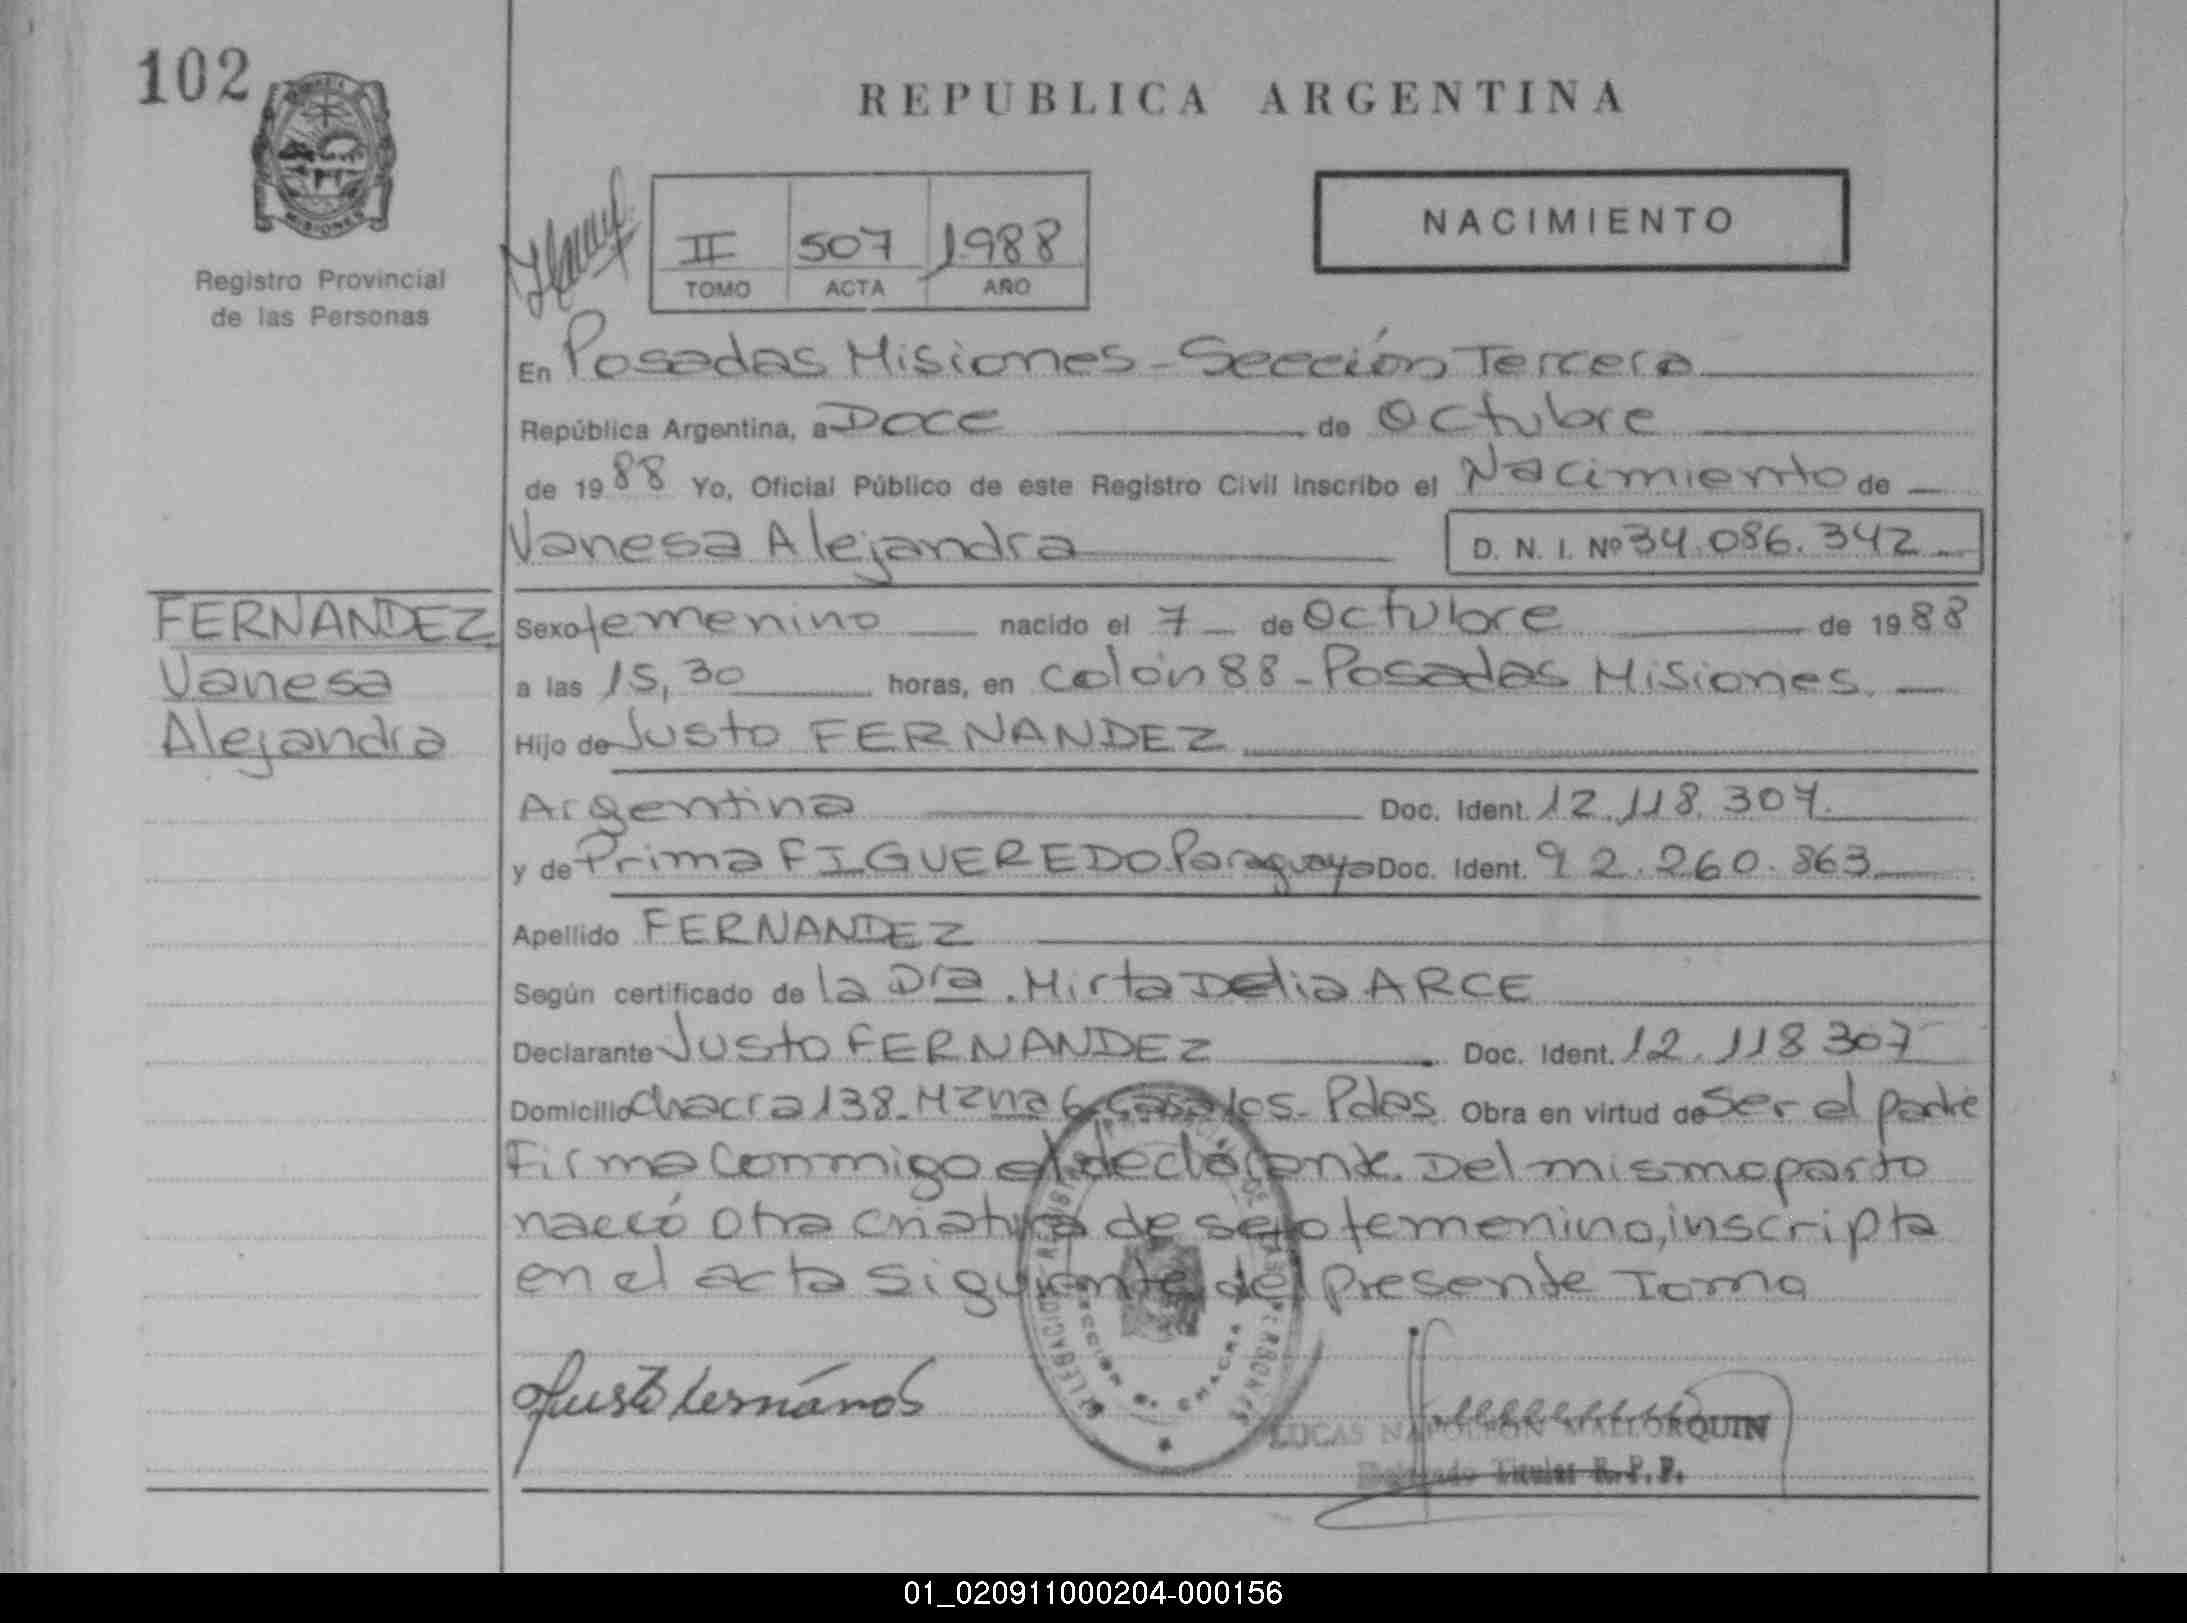 102
MISIONES
Registro Provincial
de las Personas
REPUBLICA ARGENTINA
II 507 1988
TOMO ACTA AÑO
NACIMIENTO
En Posadas Misiones - Sección Tercera
República Argentina, a Doce de Octubre
de 1988 Yo, Oficial Público de este Registro Civil inscribo el Nacimiento de
Vanesa Alejandra D. N. I. Nº 34.086.342
FERNANDEZ
Vanesa
Alejandra
Sexo femenino nacido el 7 de Octubre de 1988
a las 15,30 horas, en colón 88 - Posadas Misiones.
Hijo de Justo FERNANDEZ
Argentina Doc. Ident. 12.118.307.
y de Prima FIGUEREDO Paraguaya Doc. Ident. 92.260.863
Apellido FERNANDEZ
Según certificado de la Dra. Mirta Delia ARCE
Declarante Justo FERNANDEZ Doc. Ident. 12.118 307
Domicilio Chacra 138. Mzna 6 Casa Pdas. Obra en virtud de Ser el padre
Firma Conmigo el declarante. Del mismo parto
nació otra criatura de sexo femenino, inscripta
en el acta siguiente del presente Tomo
LUCAS NAPOLEON MALLORQUIN
Delegado Titular R.P.P.
01_020911000204-000156